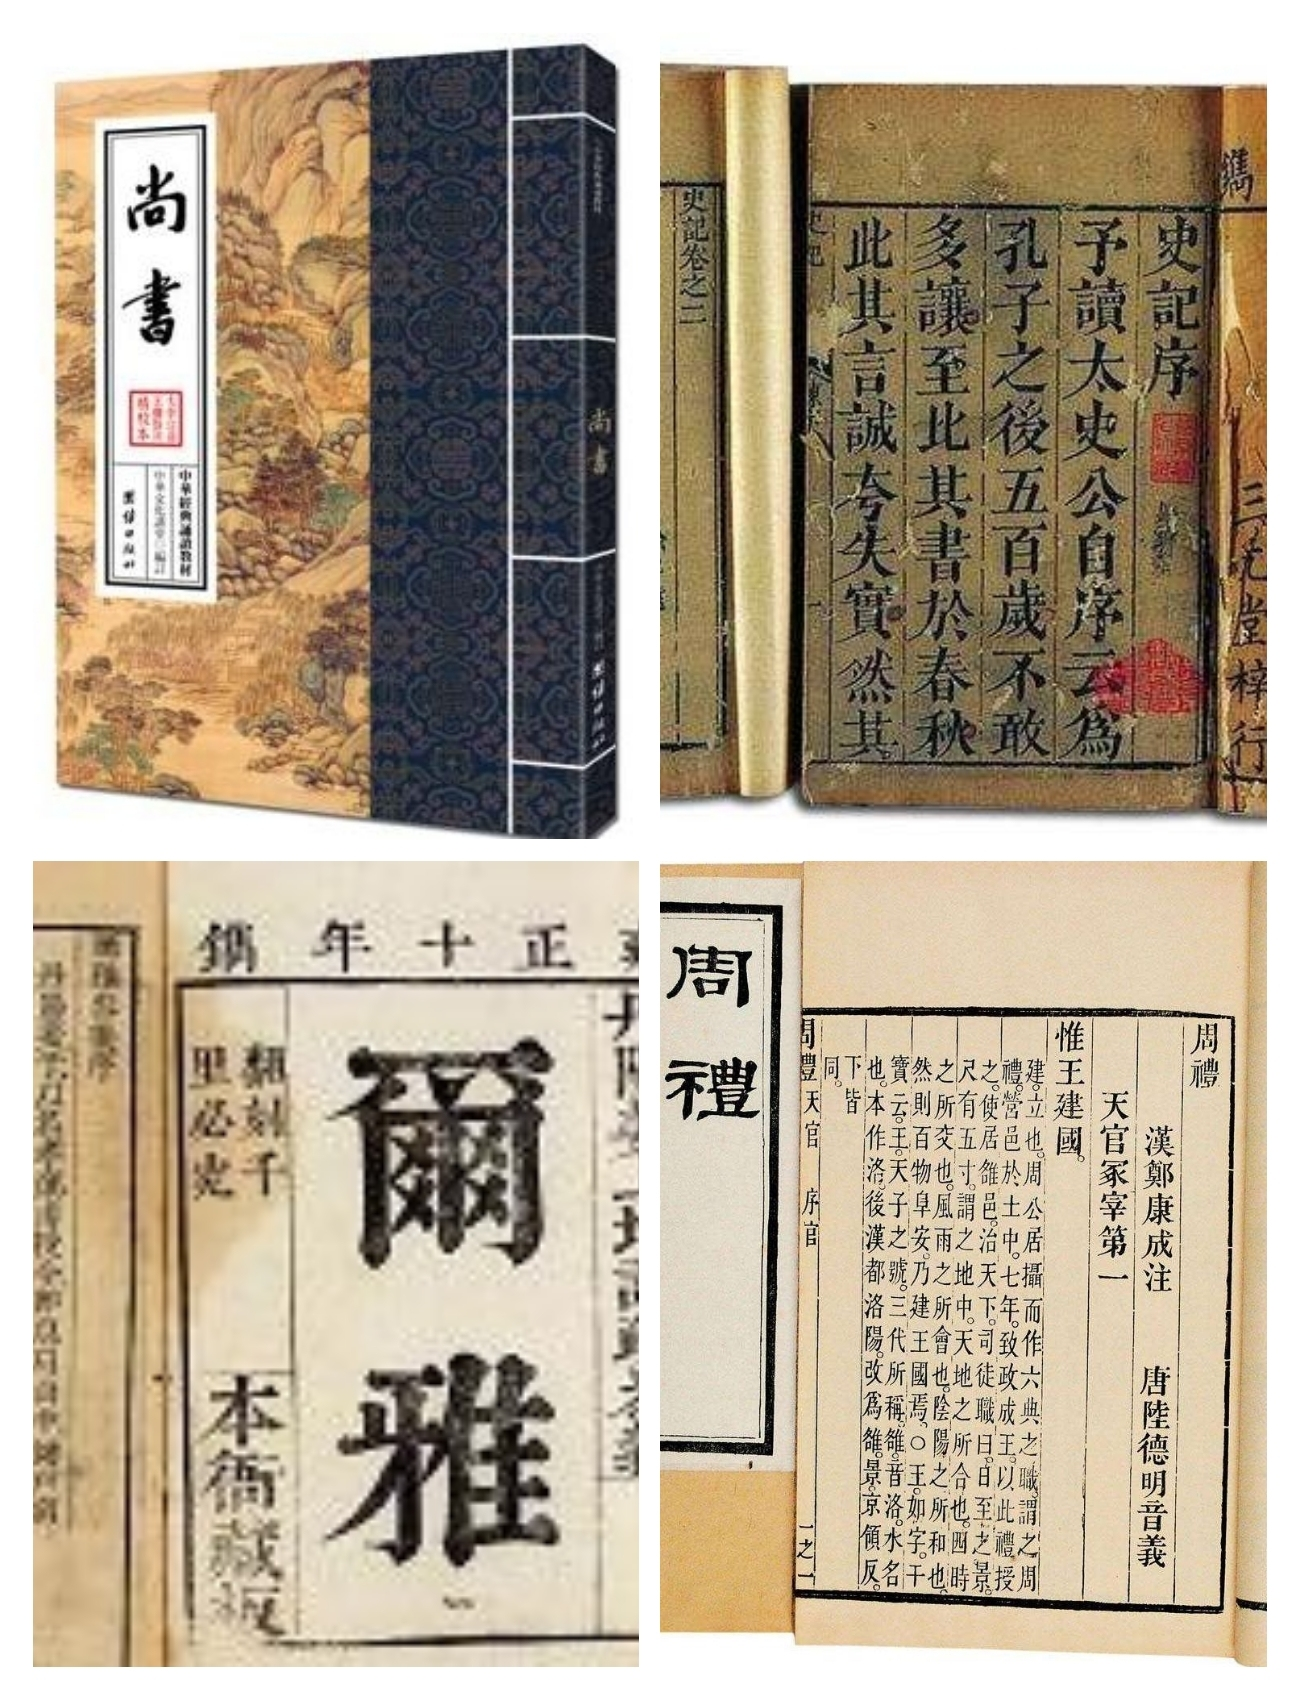 尚書
中華經典誦讀教材
團結出版社
尚書
團結出版社
鐫
三元堂梓行
史記序
予讀太史公自序云爲
孔子之後五百歲不敢
多讓至此其書於春秋
此其言誠夸失實然其
史記卷之二
正十年鐫
爾雅
翻刻千
里必究
本衙藏板
周禮
周禮
漢鄭康成注 唐陸德明音義
天官冢宰第一
惟王建國。
建。立也。周公居攝而作六典之職。謂之周
禮。營邑於土中。七年。致政成王。以此禮授
之。使居雒邑。治天下。司徒職曰。日至之景。
尺有五寸。謂之地中。天地之所合也。四時
之所交也。風雨之所會也。陰陽之所和也。
然則百物阜安。乃建王國焉。○王。如字。干
寶云。王。天子之號。三代所稱。雒。音洛。水名
也。本作洛。後漢都洛陽。改爲雒。景。京領反。
下皆
同。
周禮 天官 序官 一之一